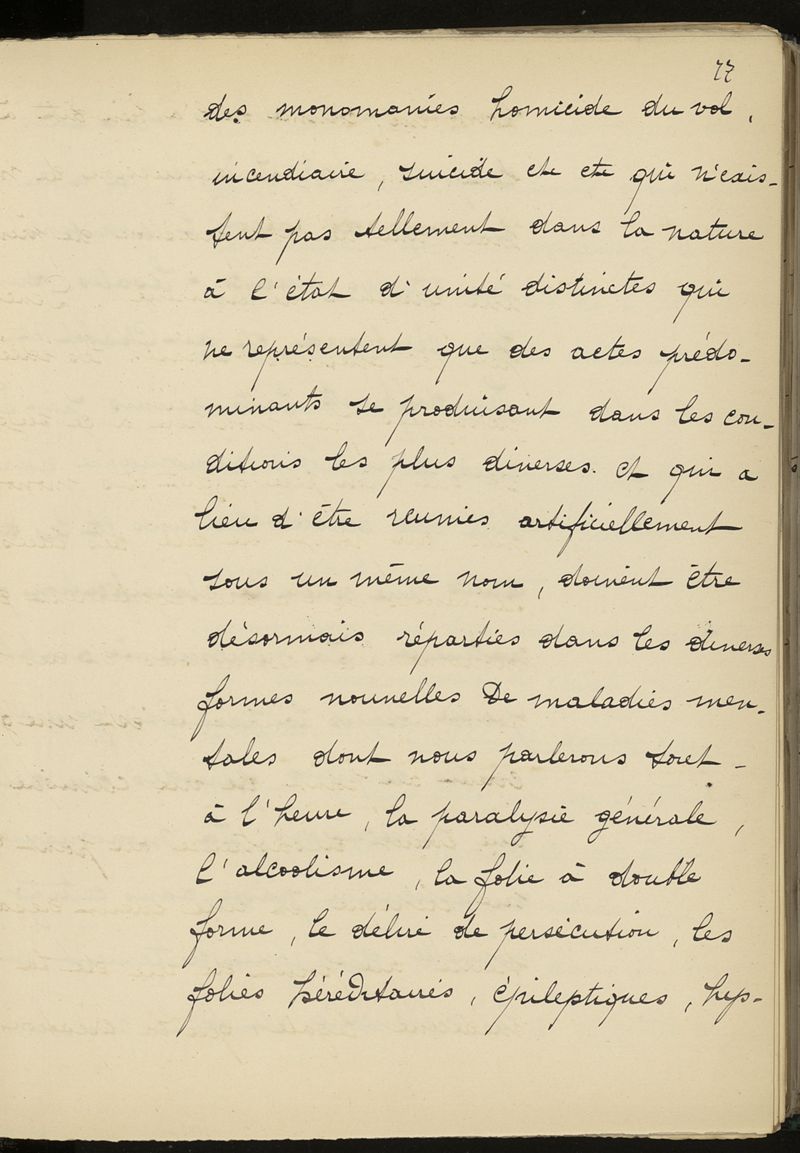 77
des monomanies homicide du vol,
incendiaire, suicide etc etc qui n'exis-
tent pas tellement dans la nature
à l'état d'unité distinctes qui
ne représentent que des actes prédo-
minants se produisant dans les con-
ditions les plus diverses. et qui a
lieu d'être reunies artificiellement
sous un même nom, doivent être
désormais réparties dans les diverses
formes nouvelles De maladies men-
tales dont nous parlerons tout-
à l'heure, la paralysie générale,
l'alcoolisme, la folie à double
forme, le délire de persécution, les
folies héréditaires, épileptiques, hys-